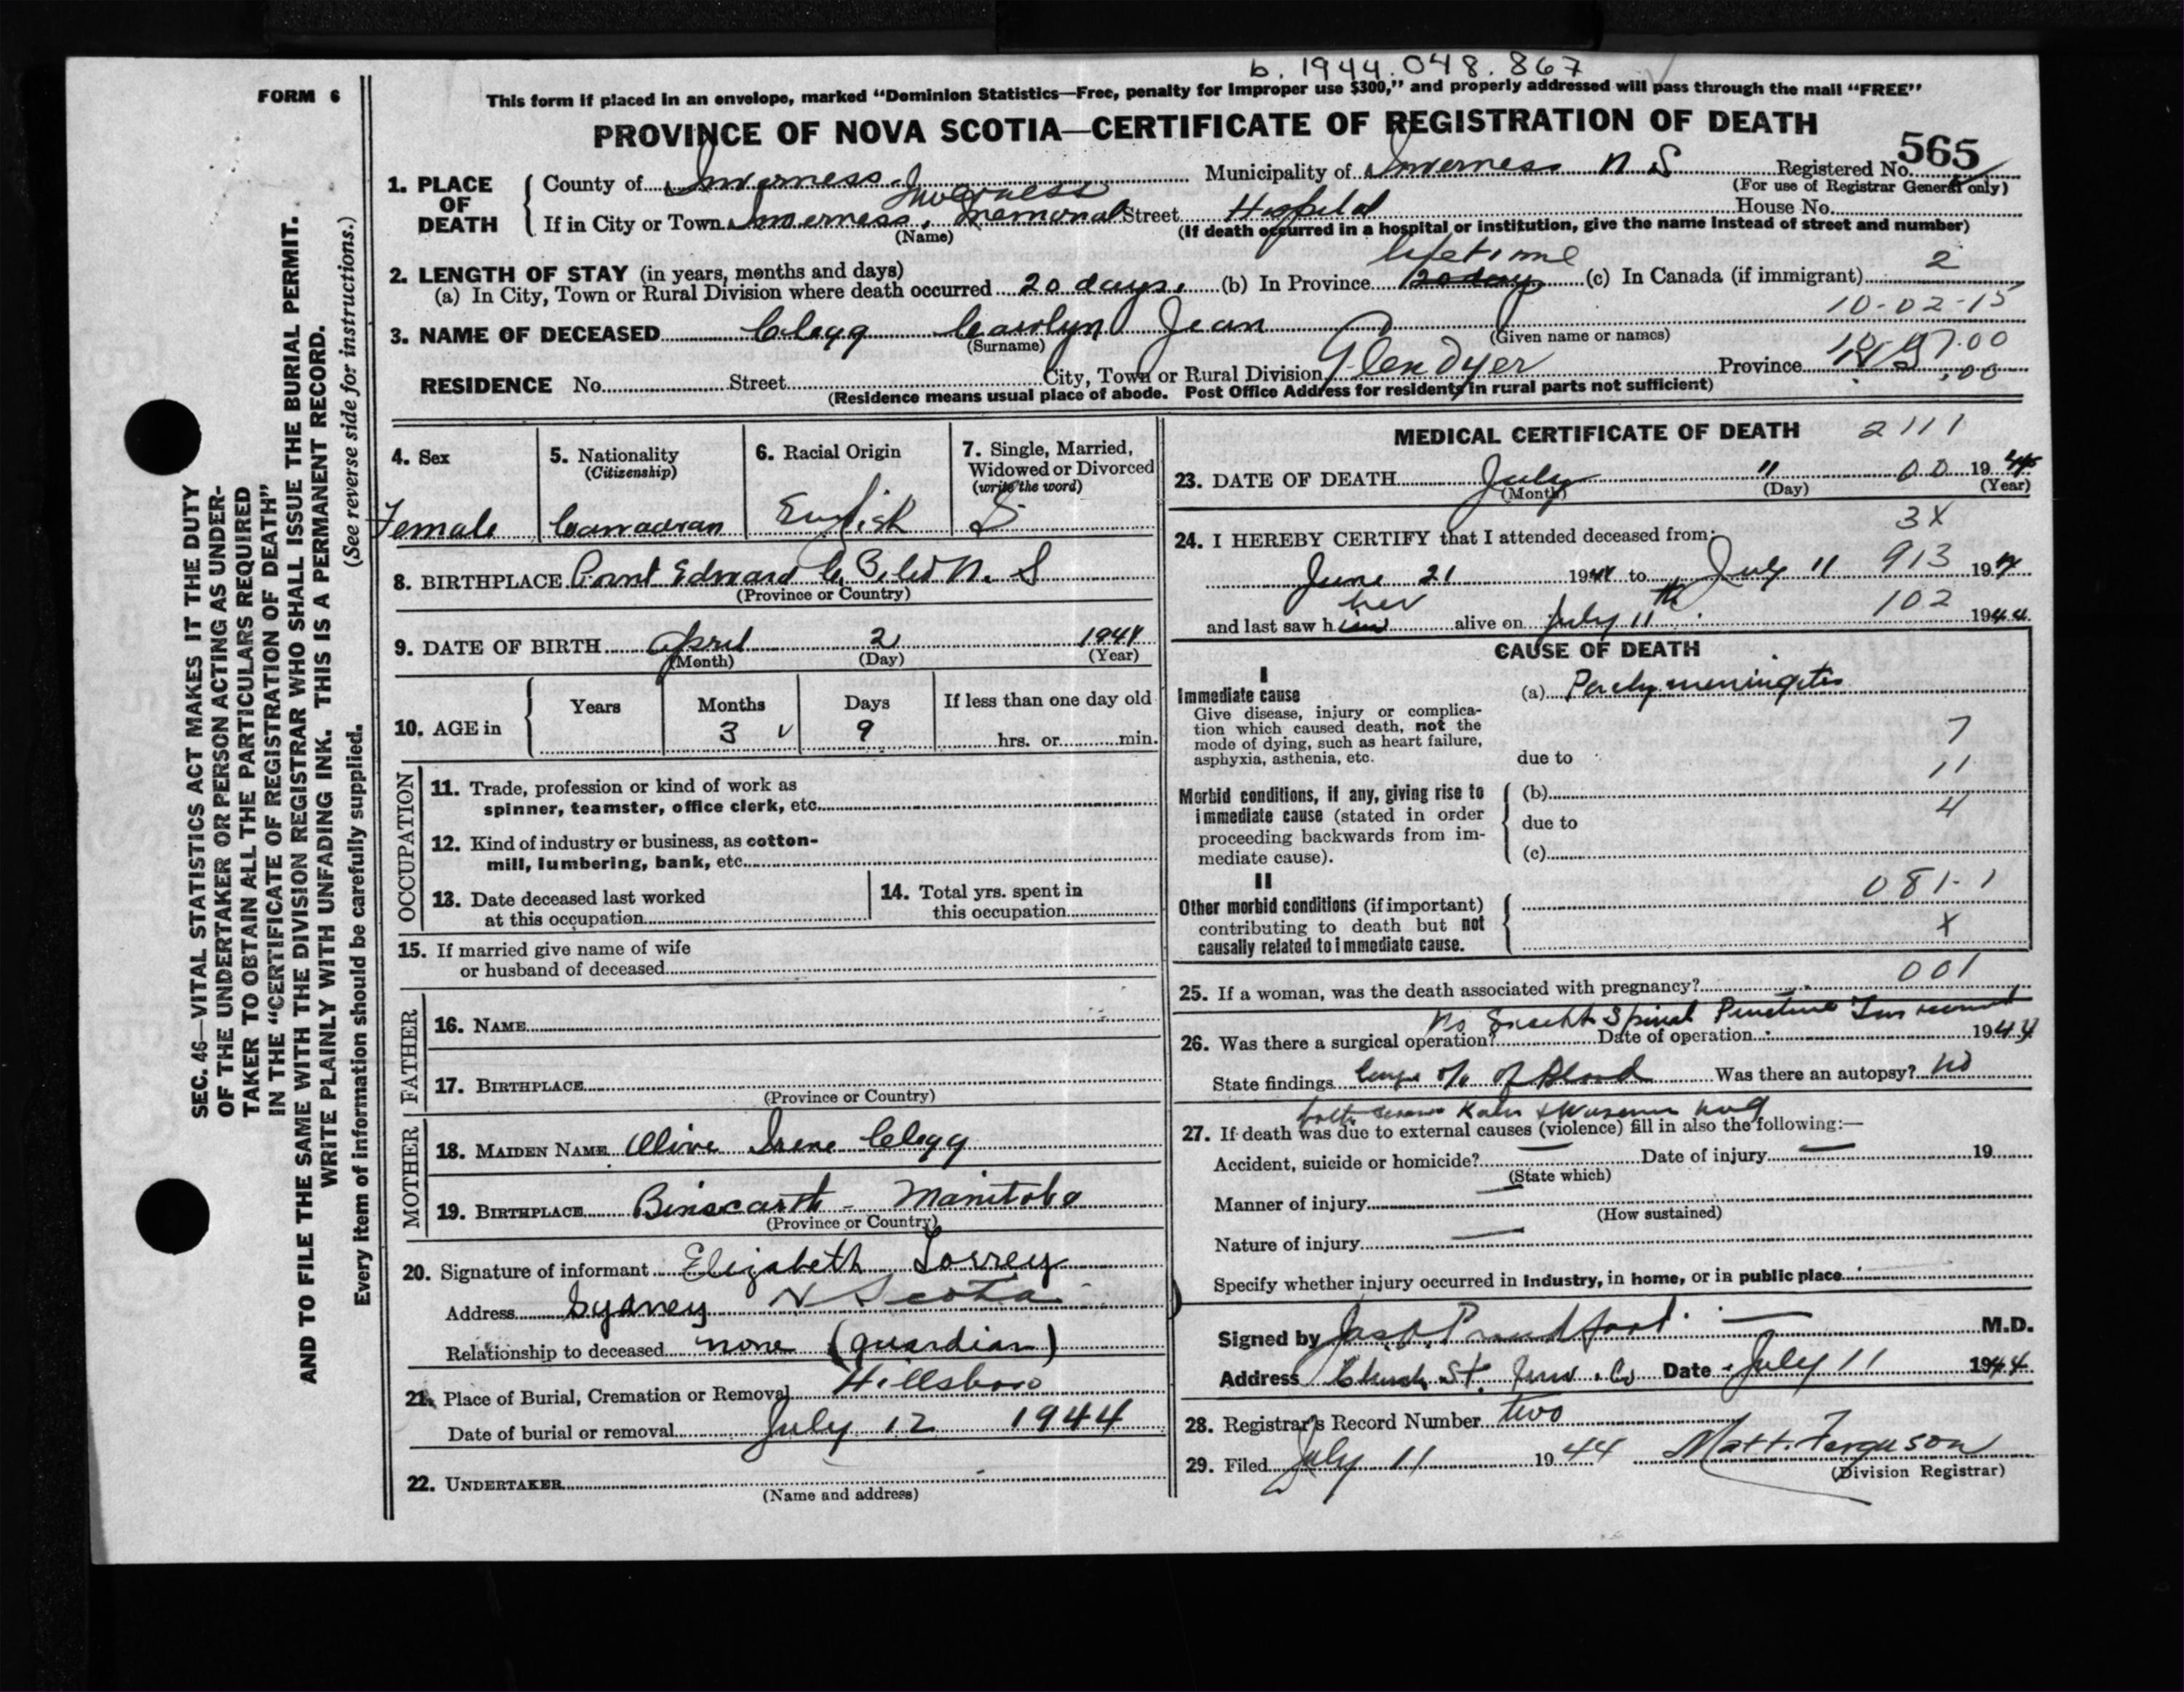 b. 1944.048.867
FORM 6
This form if placed in an envelope, marked “Dominion Statistics—Free, penalty for improper use $300,” and properly addressed will pass through the mail “FREE”
PROVINCE OF NOVA SCOTIA—CERTIFICATE OF REGISTRATION OF DEATH
565
1. PLACE OF DEATH
County of Inverness Municipality of Inverness N S Registered No.
(For use of Registrar General only)
Inverness
If in City or Town Inverness, Memorial Street Hospital House No.
(Name) (If death occurred in a hospital or institution, give the name instead of street and number)
2. LENGTH OF STAY (in years, months and days) lifetime
(a) In City, Town or Rural Division where death occurred 20 days. (b) In Province 20 days (c) In Canada (if immigrant) 2
10-02-15
3. NAME OF DECEASED Clegg Carolyn Jean
(Surname) (Given name or names)
RESIDENCE No. Street City, Town or Rural Division Glendyer Province N S
(Residence means usual place of abode. Post Office Address for residents in rural parts not sufficient)
4. Sex
Female
5. Nationality
(Citizenship)
Canadian
6. Racial Origin
English
7. Single, Married,
Widowed or Divorced
(write the word)
S
8. BIRTHPLACE Point Edward C. B. N. S
(Province or Country)
9. DATE OF BIRTH April 2 1944
(Month) (Day) (Year)
10. AGE in
Years Months Days If less than one day old
3 9 hrs. or min.
OCCUPATION
11. Trade, profession or kind of work as
spinner, teamster, office clerk, etc.
12. Kind of industry or business, as cotton-
mill, lumbering, bank, etc.
13. Date deceased last worked
at this occupation
14. Total yrs. spent in
this occupation
15. If married give name of wife
or husband of deceased
FATHER
16. NAME
17. BIRTHPLACE
(Province or Country)
MOTHER
18. MAIDEN NAME Olive Irene Clegg
19. BIRTHPLACE Binscarth - Manitoba
(Province or Country)
20. Signature of informant Elizabeth Torrey
Address Sydney N Scotia
Relationship to deceased none (guardian)
21. Place of Burial, Cremation or Removal Hillsboro
Date of burial or removal July 12 1944
22. UNDERTAKER
(Name and address)
MEDICAL CERTIFICATE OF DEATH 2111
23. DATE OF DEATH July 11 00 1944
(Month) (Day) (Year)
3X
24. I HEREBY CERTIFY that I attended deceased from:
June 21 1944 to July 11 913 1944
her
and last saw him alive on July 11th 102 1944
CAUSE OF DEATH
I
Immediate cause
Give disease, injury or complica-
tion which caused death, not the
mode of dying, such as heart failure,
asphyxia, asthenia, etc.
(a) Pachymeningitis
7
due to
11
Morbid conditions, if any, giving rise to
immediate cause (stated in order
proceeding backwards from im-
mediate cause).
(b)
4
due to
(c)
II
Other morbid conditions (if important)
contributing to death but not
causally related to immediate cause.
081-1
X
001
25. If a woman, was the death associated with pregnancy?
No Spinal Puncture
26. Was there a surgical operation? Date of operation 1944
State findings of Blood Was there an autopsy? No
both Kahn neg
27. If death was due to external causes (violence) fill in also the following:—
Accident, suicide or homicide? — Date of injury — 19
(State which)
Manner of injury —
(How sustained)
Nature of injury —
Specify whether injury occurred in industry, in home, or in public place
Signed by Jas. Proudfoot M.D.
Address Church St. Date July 11 1944
28. Registrar's Record Number two
29. Filed July 11 1944 Matt. Ferguson
(Division Registrar)
SEC. 46—VITAL STATISTICS ACT MAKES IT THE DUTY
OF THE UNDERTAKER OR PERSON ACTING AS UNDER-
TAKER TO OBTAIN ALL THE PARTICULARS REQUIRED
IN THE “CERTIFICATE OF REGISTRATION OF DEATH”
AND TO FILE THE SAME WITH THE DIVISION REGISTRAR WHO SHALL ISSUE THE BURIAL PERMIT.
WRITE PLAINLY WITH UNFADING INK. THIS IS A PERMANENT RECORD.
(See reverse side for instructions.)
Every item of information should be carefully supplied.